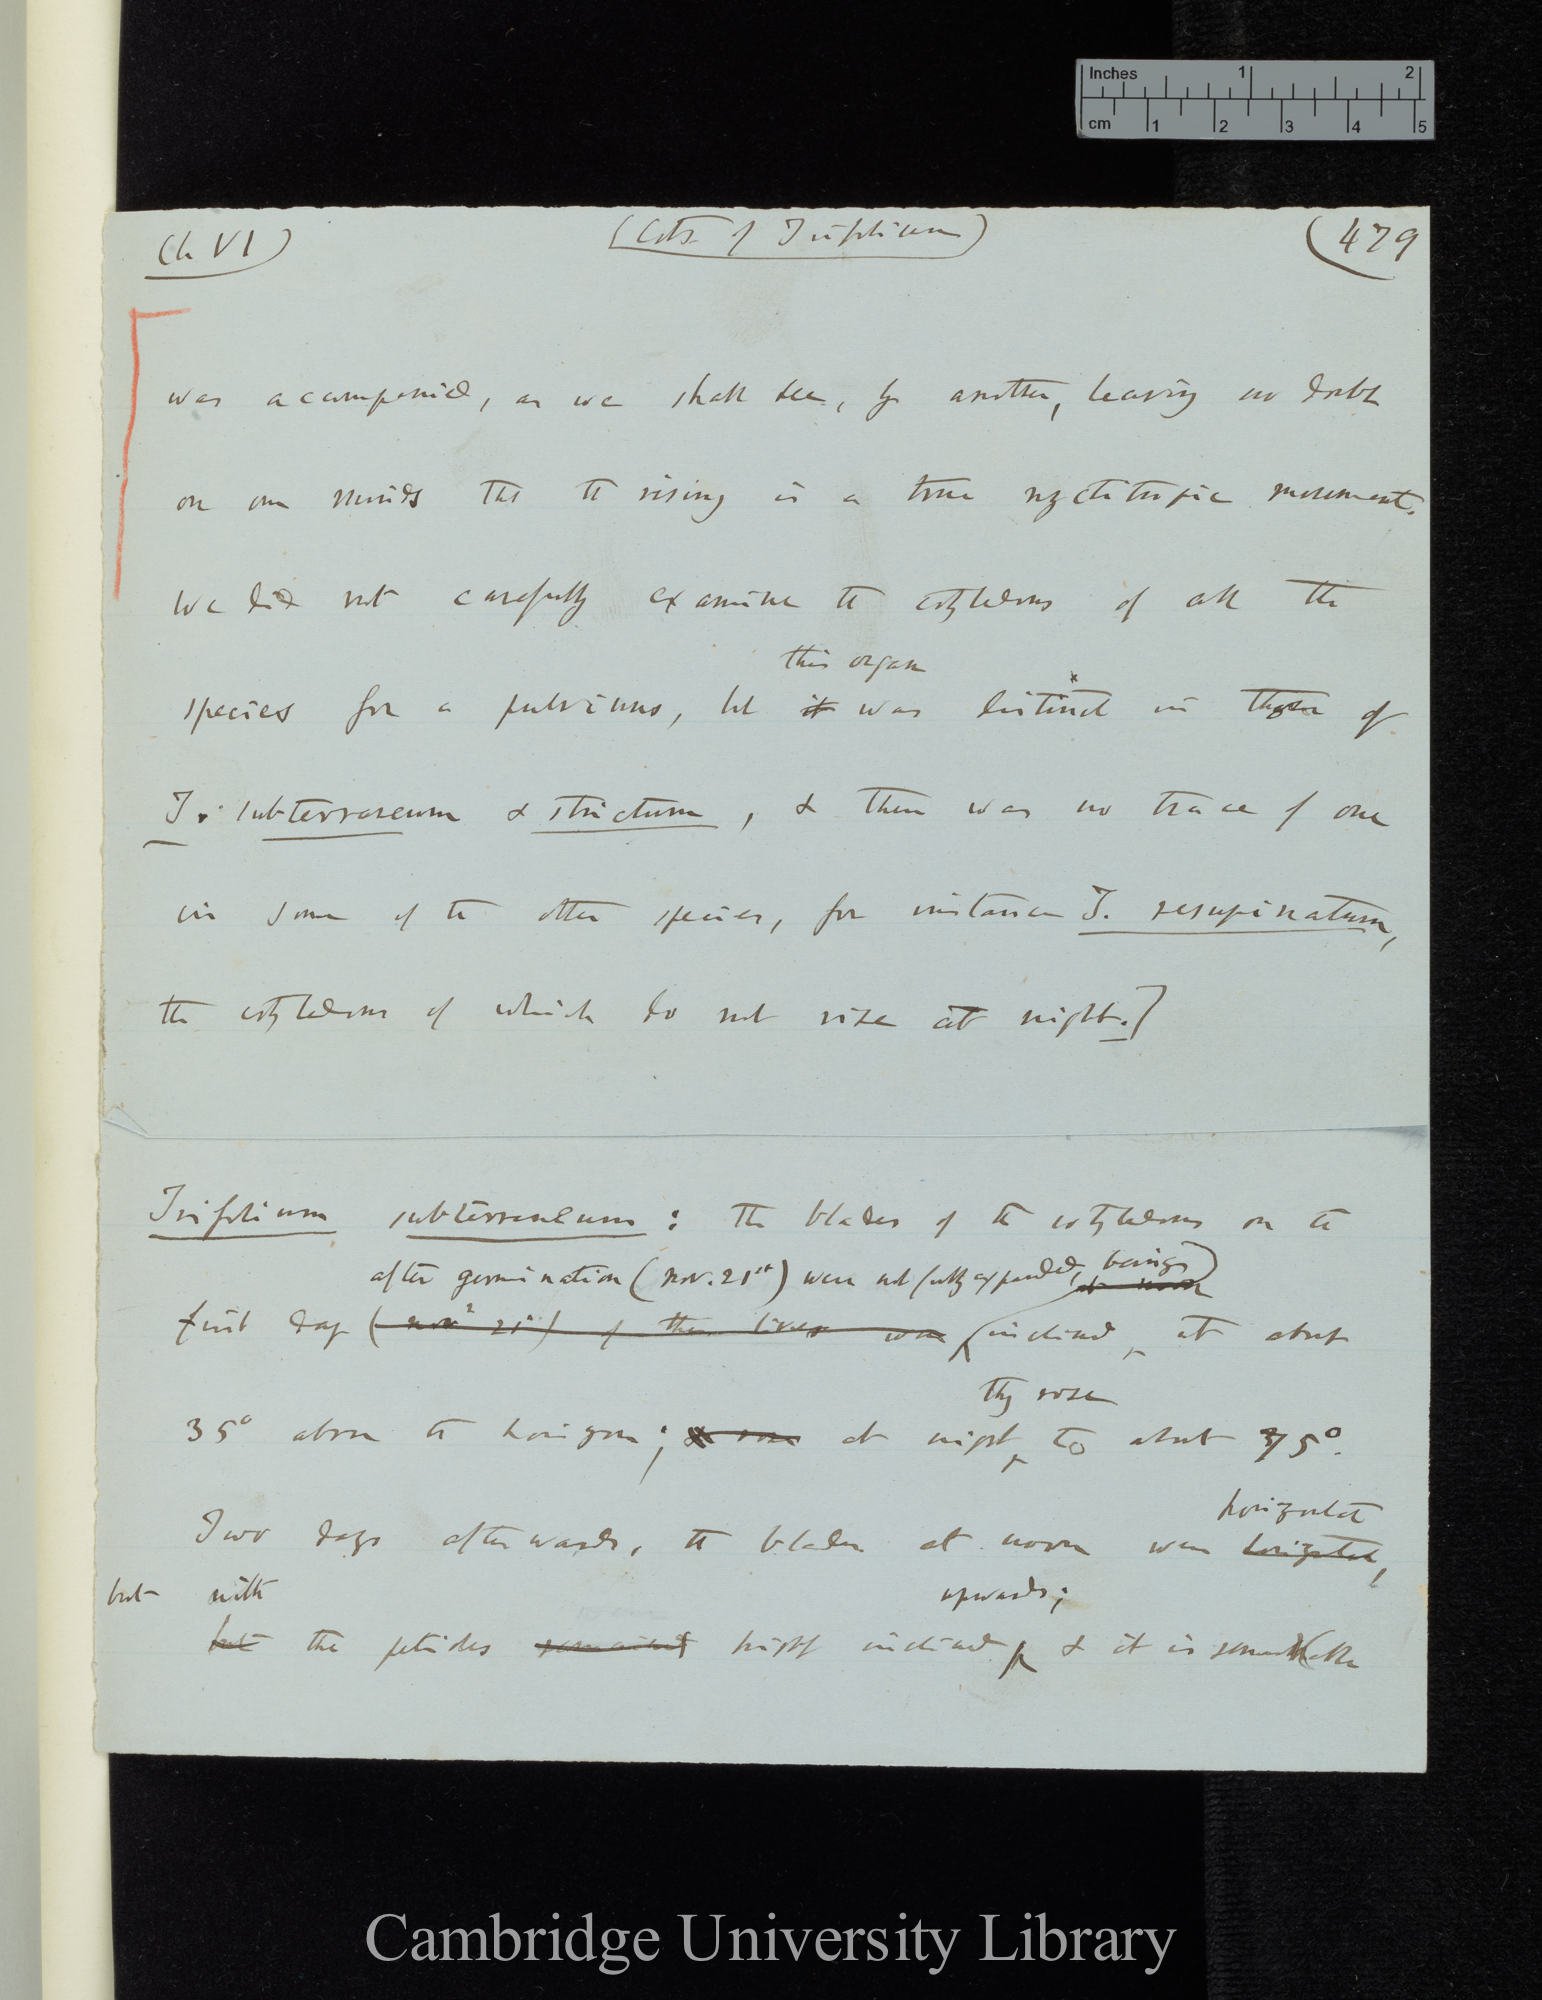 Inches 1 2
cm 1 2 3 4 5
Ch VI) (Cots. of Trifolium) (479
was accompanied, as we shall see, by another, leaving no doubt
on our minds that the rising is a true nyctitropic movement.
We did not carefully examine the cotyledons of all the
this organ
species for a pulvinus, but it was distinct in those of
T. subterraneum & strictum, & there was no trace of one
in some of the other species, for instance T. resupinatum,
the cotyledons of which do not rise at night.]
Trifolium subterraneum: The blades of the cotyledons on the
after germination (Nov. 21st) were not fully expanded, being
first day (Nov 21st) of their lives were inclined at about
they rose
35° above the horizon; & rose at night to about 75°.
horizontal
Two days afterwards, the blades at noon were horizontal,
but with upwards;
but the petioles remained highly inclined & it is remarkable
Cambridge University Library